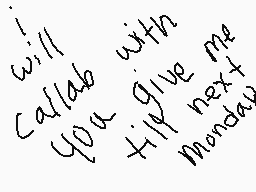 i will
callab with
you give me
till next
monday